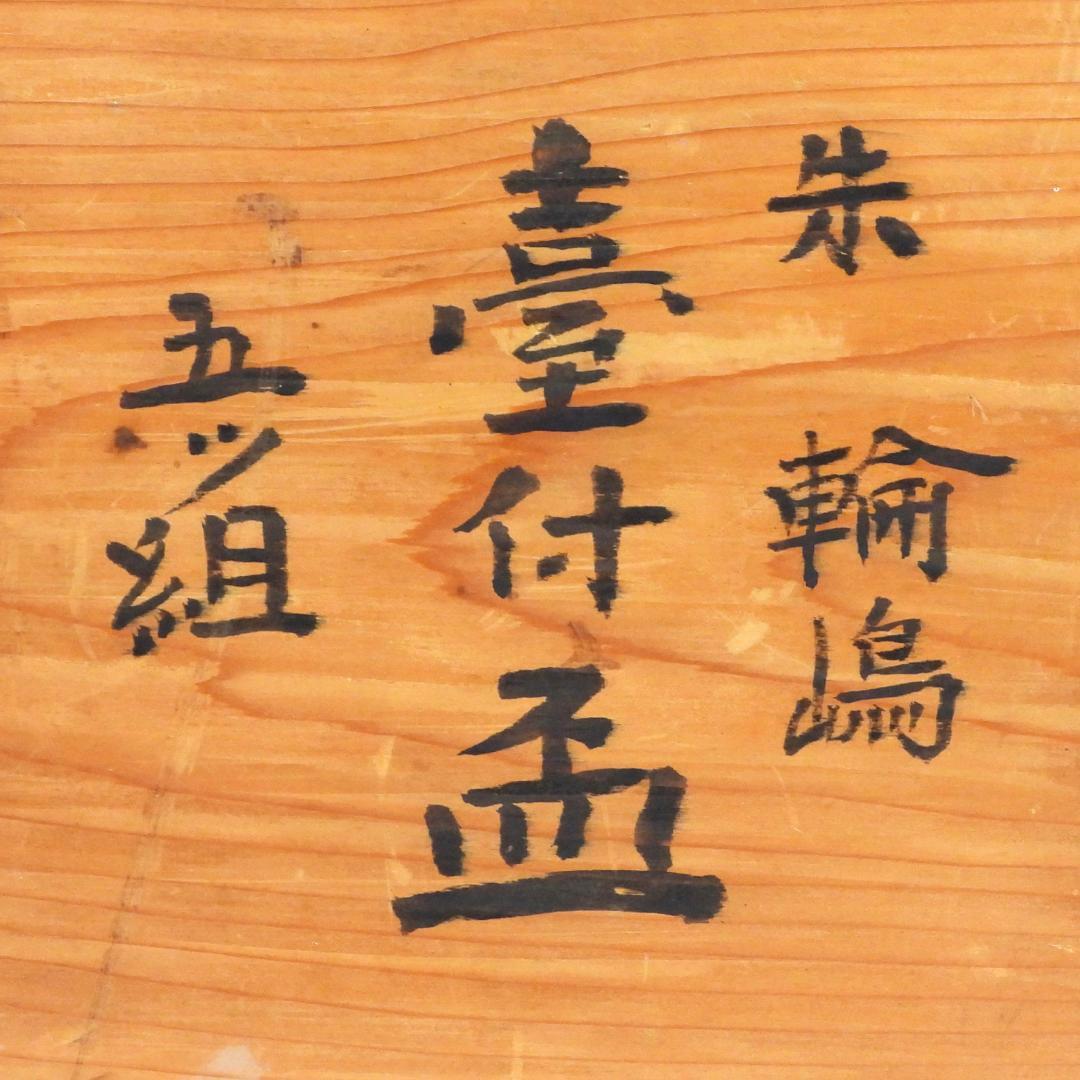 朱 輪嶋
臺付盃
五ツ組